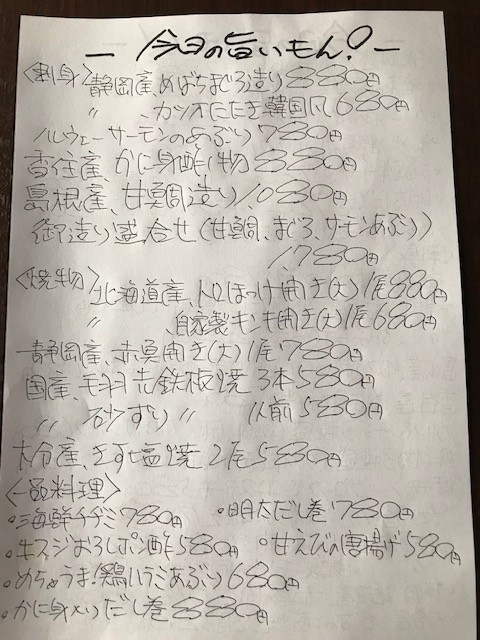 — 今日の旨いもん! —
<刺身> 静岡産、めばちまぐろ造り 880円
〃 、カツオたたき韓国風 680円
ノルウェーサーモンのあぶり 780円
香住産、かに身酢ノ物 880円
島根産、甘鯛造り 1,080円
御造り盛合せ(甘鯛、まぐろ、サーモンあぶり)
1,780円
<焼物> 北海道産、トロほっけ開き(大)1尾880円
〃 、自家製キンキ開き(大)1尾680円
静岡産、赤魚開き(大)1尾780円
国産、手羽先鉄板焼 3本580円
〃 砂ずり 〃 1人前580円
大分産、きす塩焼 2尾580円
<一品料理>
・海鮮チヂミ 780円 ・明太だし巻 780円
・牛スジおろしポン酢 580円 ・甘えびの唐揚げ 580円
・めちゃうま!鶏ハラミあぶり 680円
・かに身入りだし巻 880円